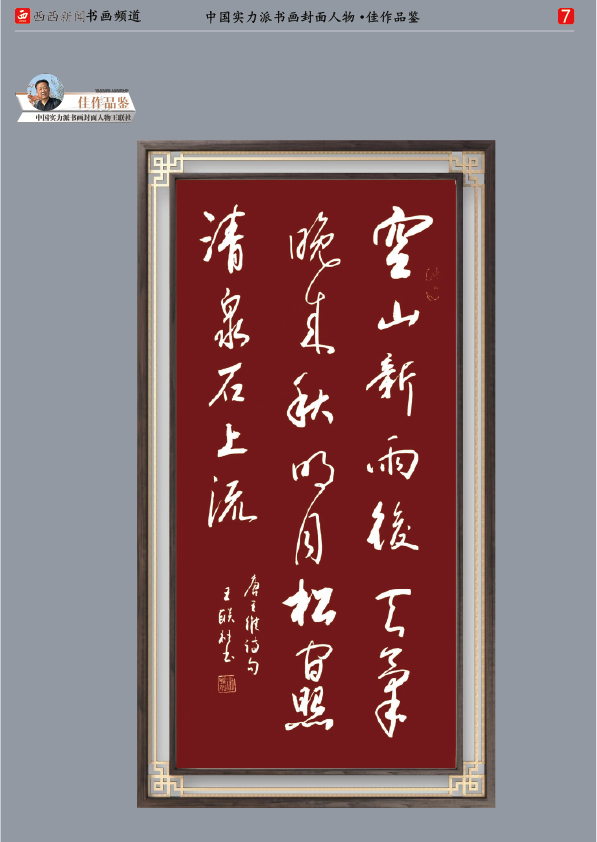 西西新闻书画频道
中国实力派书画封面人物·佳作品鉴
7
佳作品鉴
中国实力派书画封面人物王联社
空山新雨後天氣
晚来秋明月松间照
清泉石上流
唐王維詩句
王联社书